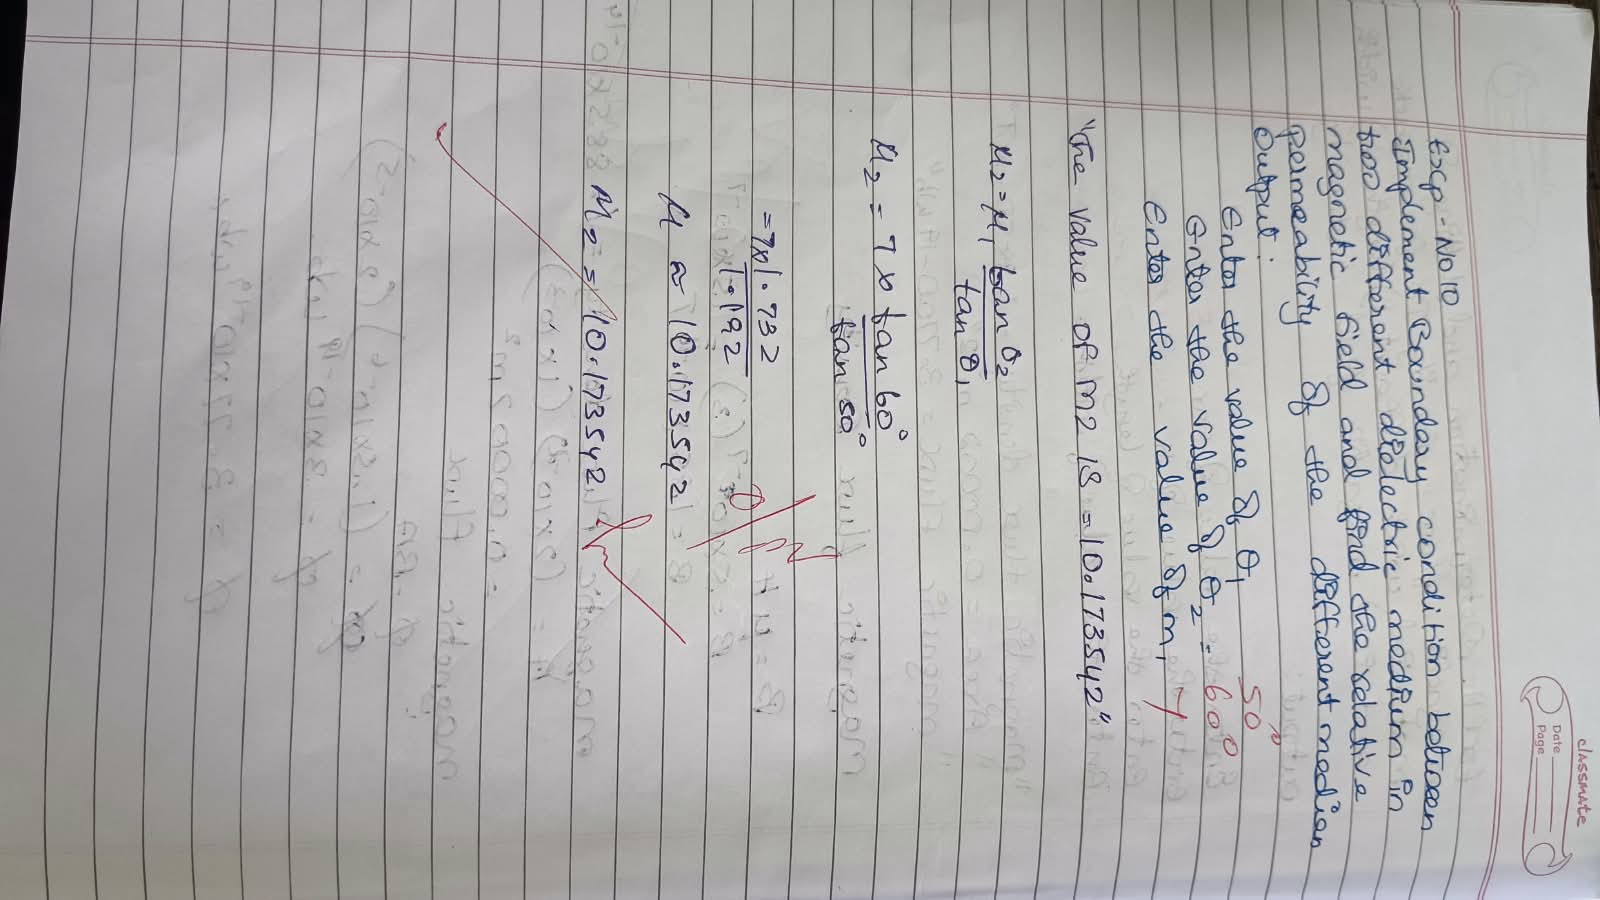 classmate
Date
Page
Exp - No 10
Implement Boundary condition between
two different dielectric medium in
magnetic field and find the relative
permeability of the different median
Output:
Enter the value of θ1 50°
Enter the value of θ2 = 60°
Enter the value of m1 7
"The value of m2 is = 10.173542"
μ2 = μ1 tan θ2
tan θ1
μ2 = 7 x tan 60°
tan 50°
= 7x1.732
1.192
μ ≈ 10.173542
μ2 = 10.173542